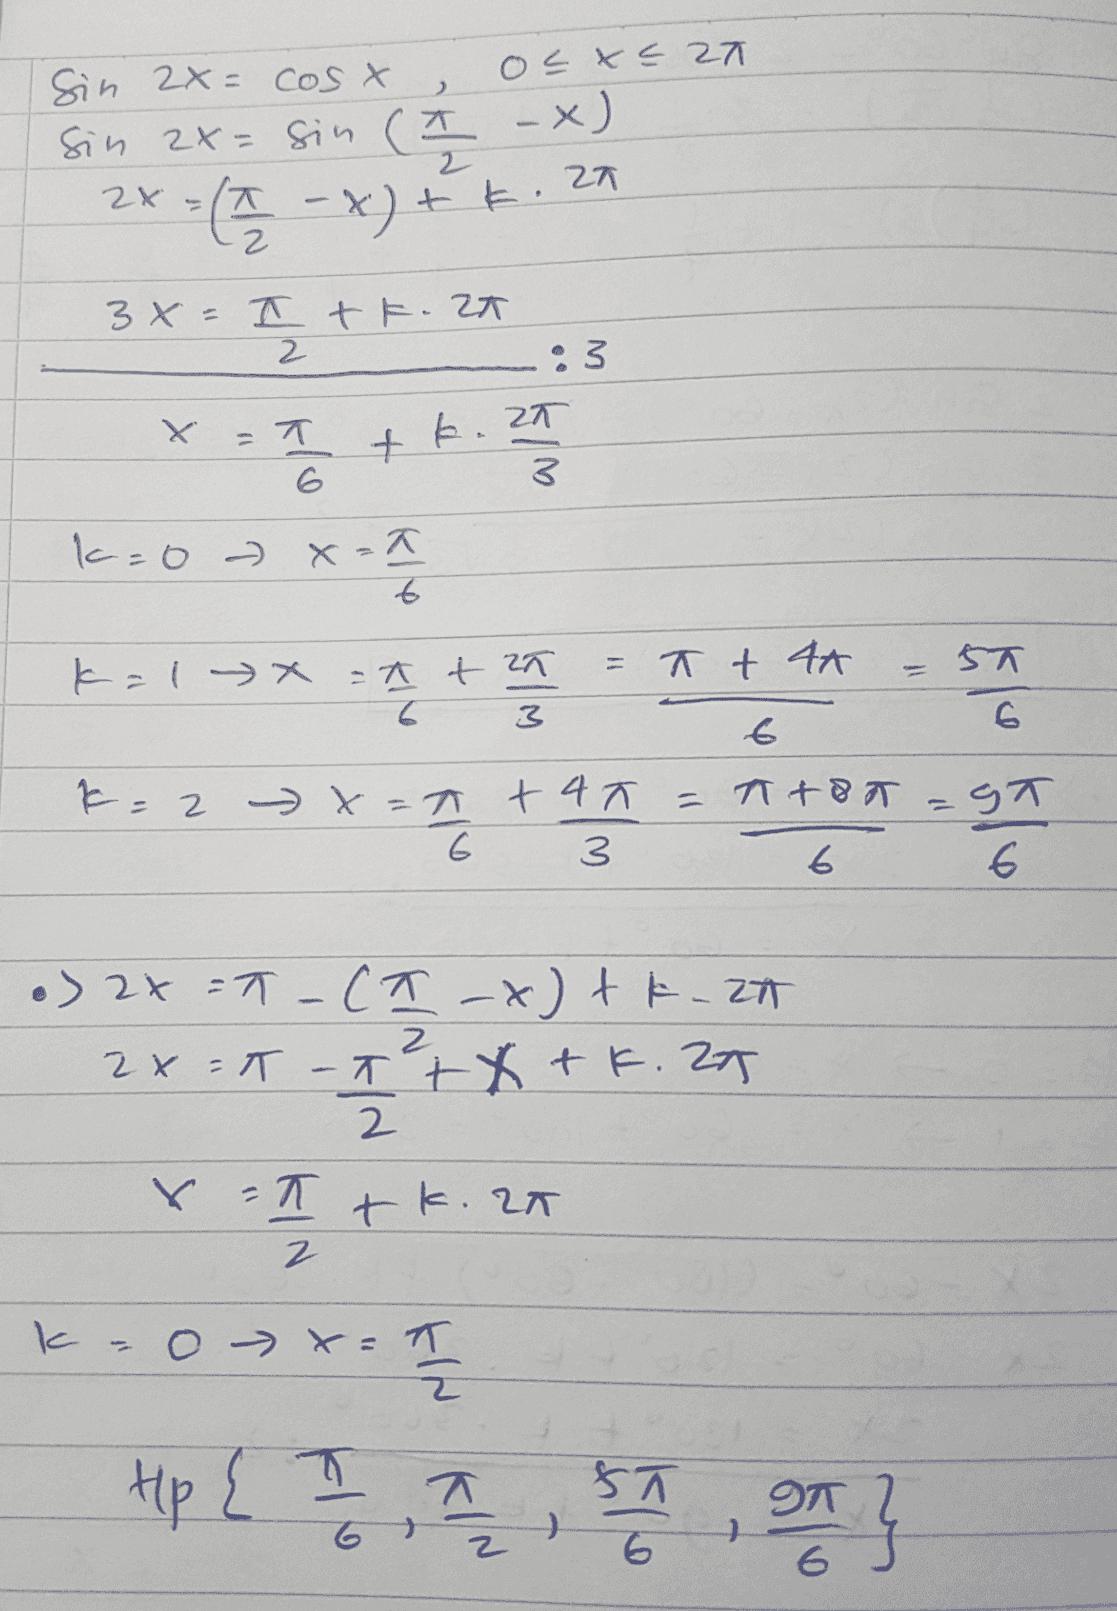 Sin 2x = cos x , 0 ≤ x ≤ 2π
Sin 2x = Sin (π/2 - x)
2x = (π/2 - x) + k. 2π
3x = π/2 + k. 2π
: 3
x = π/6 + k. 2π/3
k = 0 → x = π/6
k = 1 → x = π/6 + 2π/3 = (π + 4π)/6 = 5π/6
k = 2 → x = π/6 + 4π/3 = (π + 8π)/6 = 9π/6
•> 2x = π - (π/2 - x) + k. 2π
2x = π - π/2 + x + k. 2π
x = π/2 + k. 2π
k = 0 → x = π/2
Hp { π/6 , π/2 , 5π/6 , 9π/6 }